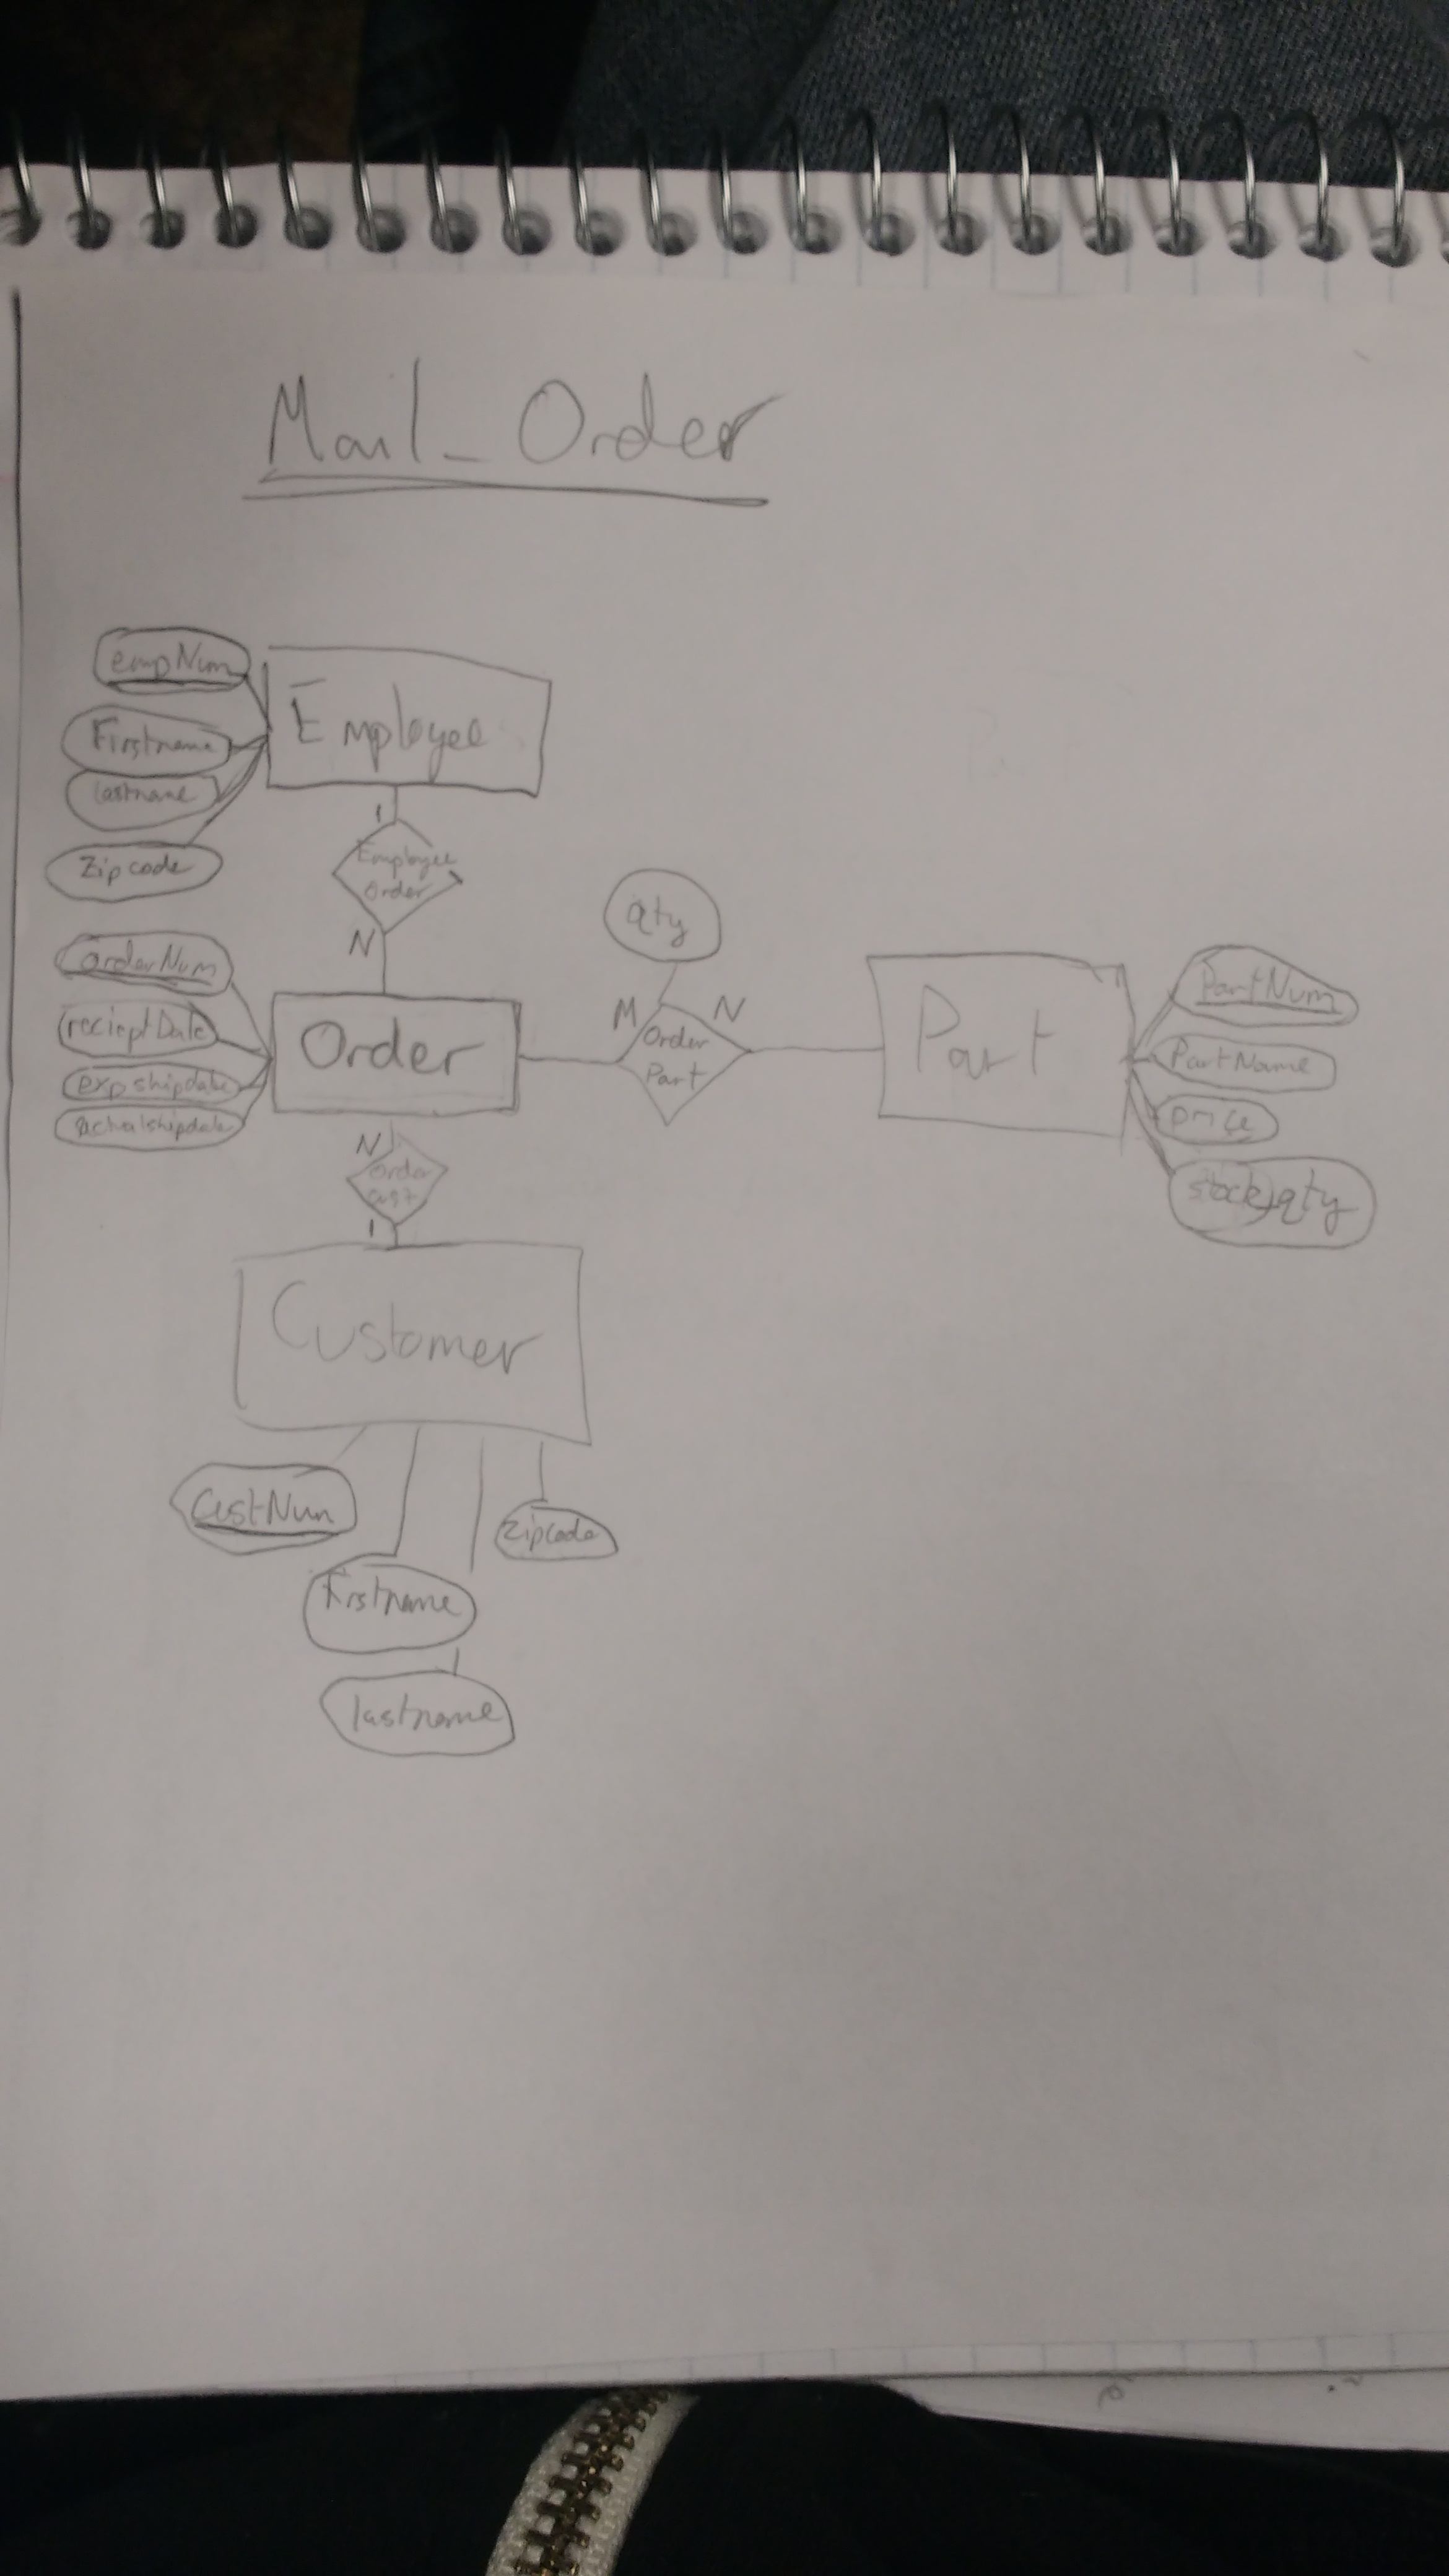 Mail_Order
empNum
Firstname
lastname
Zipcode
Employee
1
Employee
Order
N
OrderNum
recieptDate
exp shipdate
actualshipdate
Order
qty
M
N
Order
Part
Part
PartNum
PartName
price
stock qty
N
Order
cust
1
Customer
CustNum
Firstname
lastname
Zipcode